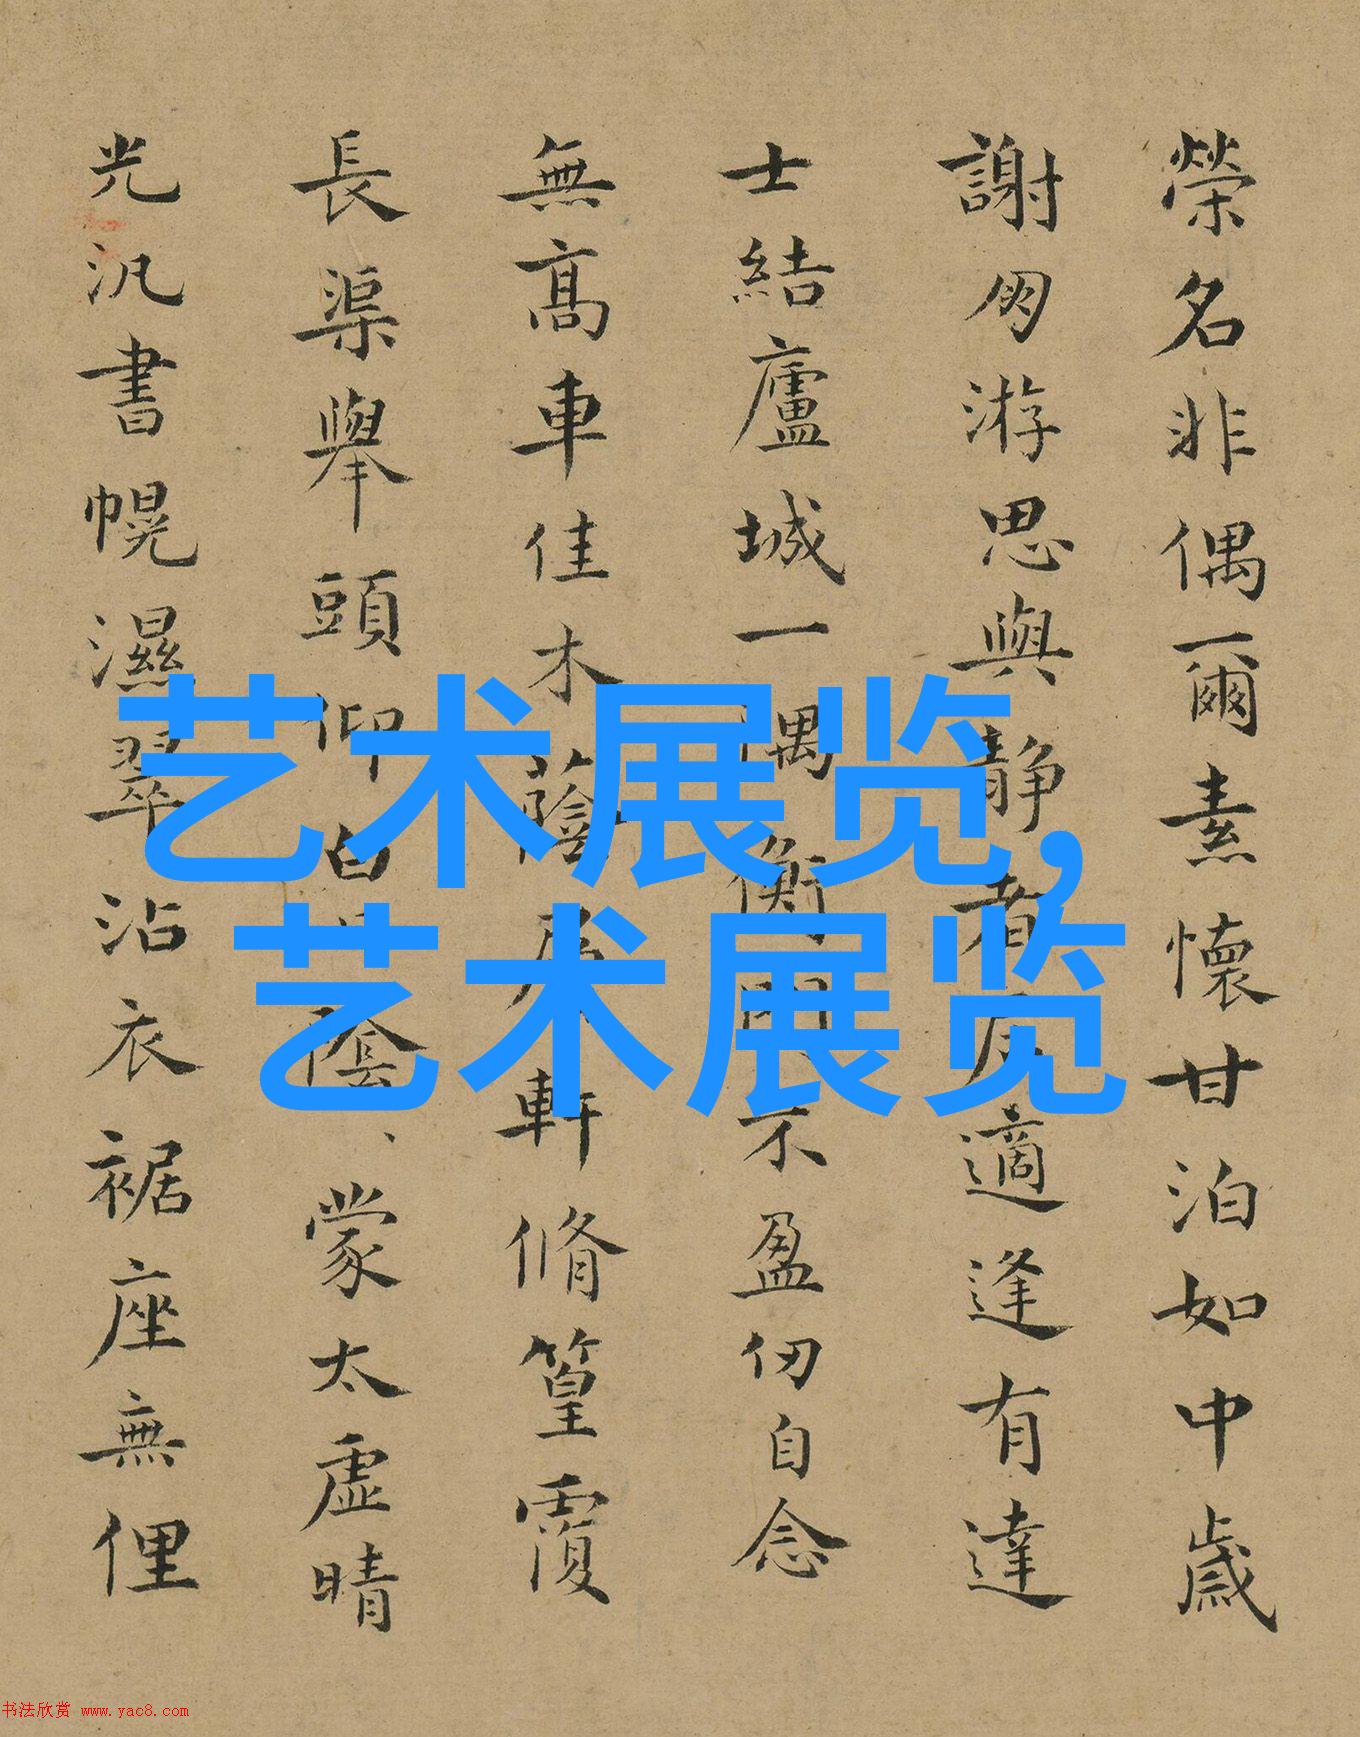 榮名非偶爾素懷甘泊如中歲
謝朋游思與静者居適逢有達
士結廬城一隅衡門不盈仞自念
無髙車佳木蔭居軒脩篁覆
長渠舉頭仰白日陰、蒙太虛晴
光汎書幌濕翠沾衣裾座無俚
艺术展览,
艺术展览
书法欣赏 www.yac8.com